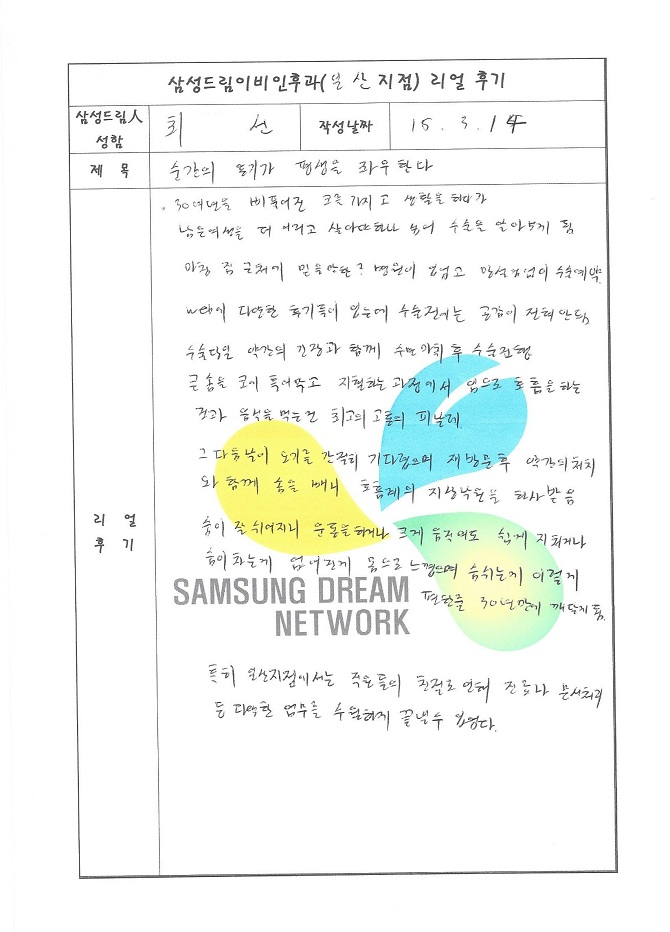 삼성드림이비인후과(일산지점) 리얼 후기
삼성드림人
성함
최 선
작성날짜
15. 3. 14
제 목
순간의 용기가 평생을 좌우한다
30여년을 삐뚤어진 코를 가지고 생활을 하다가
남은여생을 더 이러고 살아야하나 싶어 수술을 알아보게 됨
마침 집 근처에 믿을만한? 병원이 있었고 망설임없이 수술예약.
web에 다양한 후기들이 있는데 수술전에는 공감이 전혀 안됨.
수술당일 약간의 긴장과 함께 수면마취 후 수술진행
큰 솜을 코에 틀어막고 지혈하는 과정에서 입으로 호흡을 하는
것과 음식을 먹는건 최고의 고통의 피날레.
그 다음날이 오기를 간절히 기다렸으며 재방문후 약간의 처치
와 함께 솜을 빼니 호흡계의 지상낙원을 하사받음
숨이 잘 쉬어지니 운동을하거나 크게 움직여도 쉽게 지치거나
숨이차는게 없어진게 몸으로 느꼈으며 숨쉬는게 이렇게
편한줄 30년만에 깨닫게 됨.
SAMSUNG DREAM
NETWORK
리 얼
후 기
특히 일산지점에서는 직원들의 친절로 인해 진료나 문서처리
등 다양한 업무를 수월하게 끝낼수 있었다.